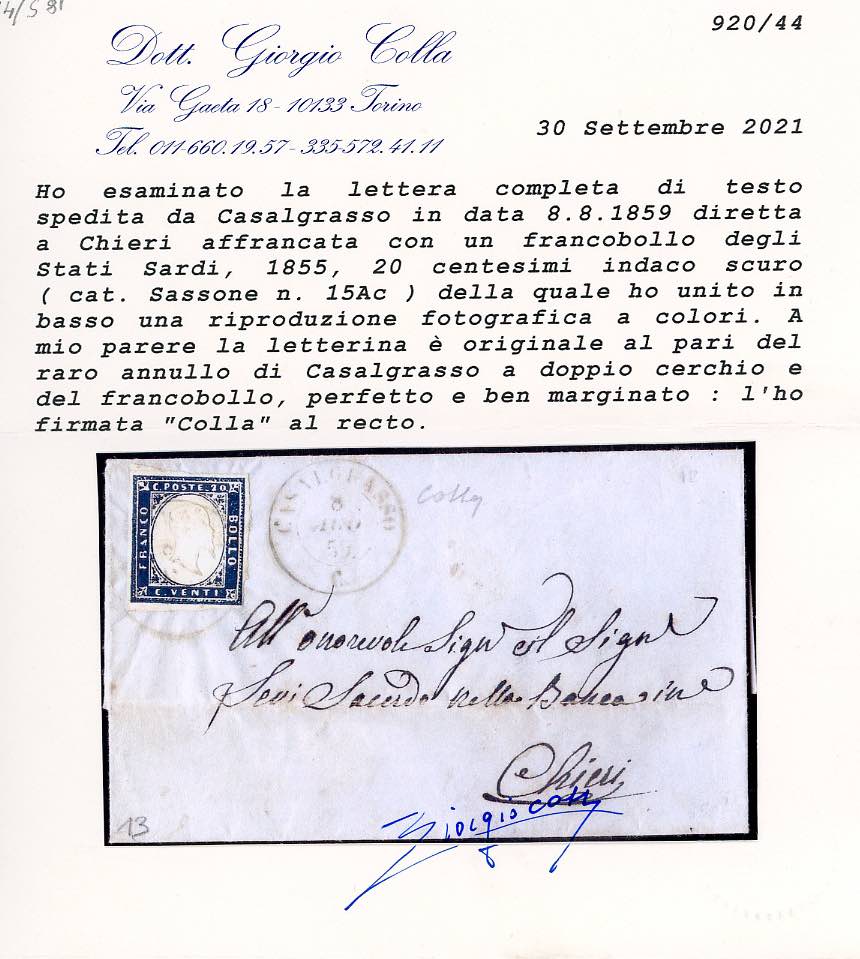 920/44
Dott. Giorgio Colla
Via Gaeta 18 - 10133 Torino
Tel. 011-660.19.57 - 335-572.41.11
30 Settembre 2021
Ho esaminato la lettera completa di testo
spedita da Casalgrasso in data 8.8.1859 diretta
a Chieri affrancata con un francobollo degli
Stati Sardi, 1855, 20 centesimi indaco scuro
( cat. Sassone n. 15Ac ) della quale ho unito in
basso una riproduzione fotografica a colori. A
mio parere la letterina è originale al pari del
raro annullo di Casalgrasso a doppio cerchio e
del francobollo, perfetto e ben marginato : l'ho
firmata "Colla" al recto.
C. POSTE. 20
FRANCO
BOLLO
C. VENTI
CASALGRASSO
8
AGO
59
Colla
All' onorevole Sign
Sign
nella Banca in
Chieri
Giorgio Colla
13